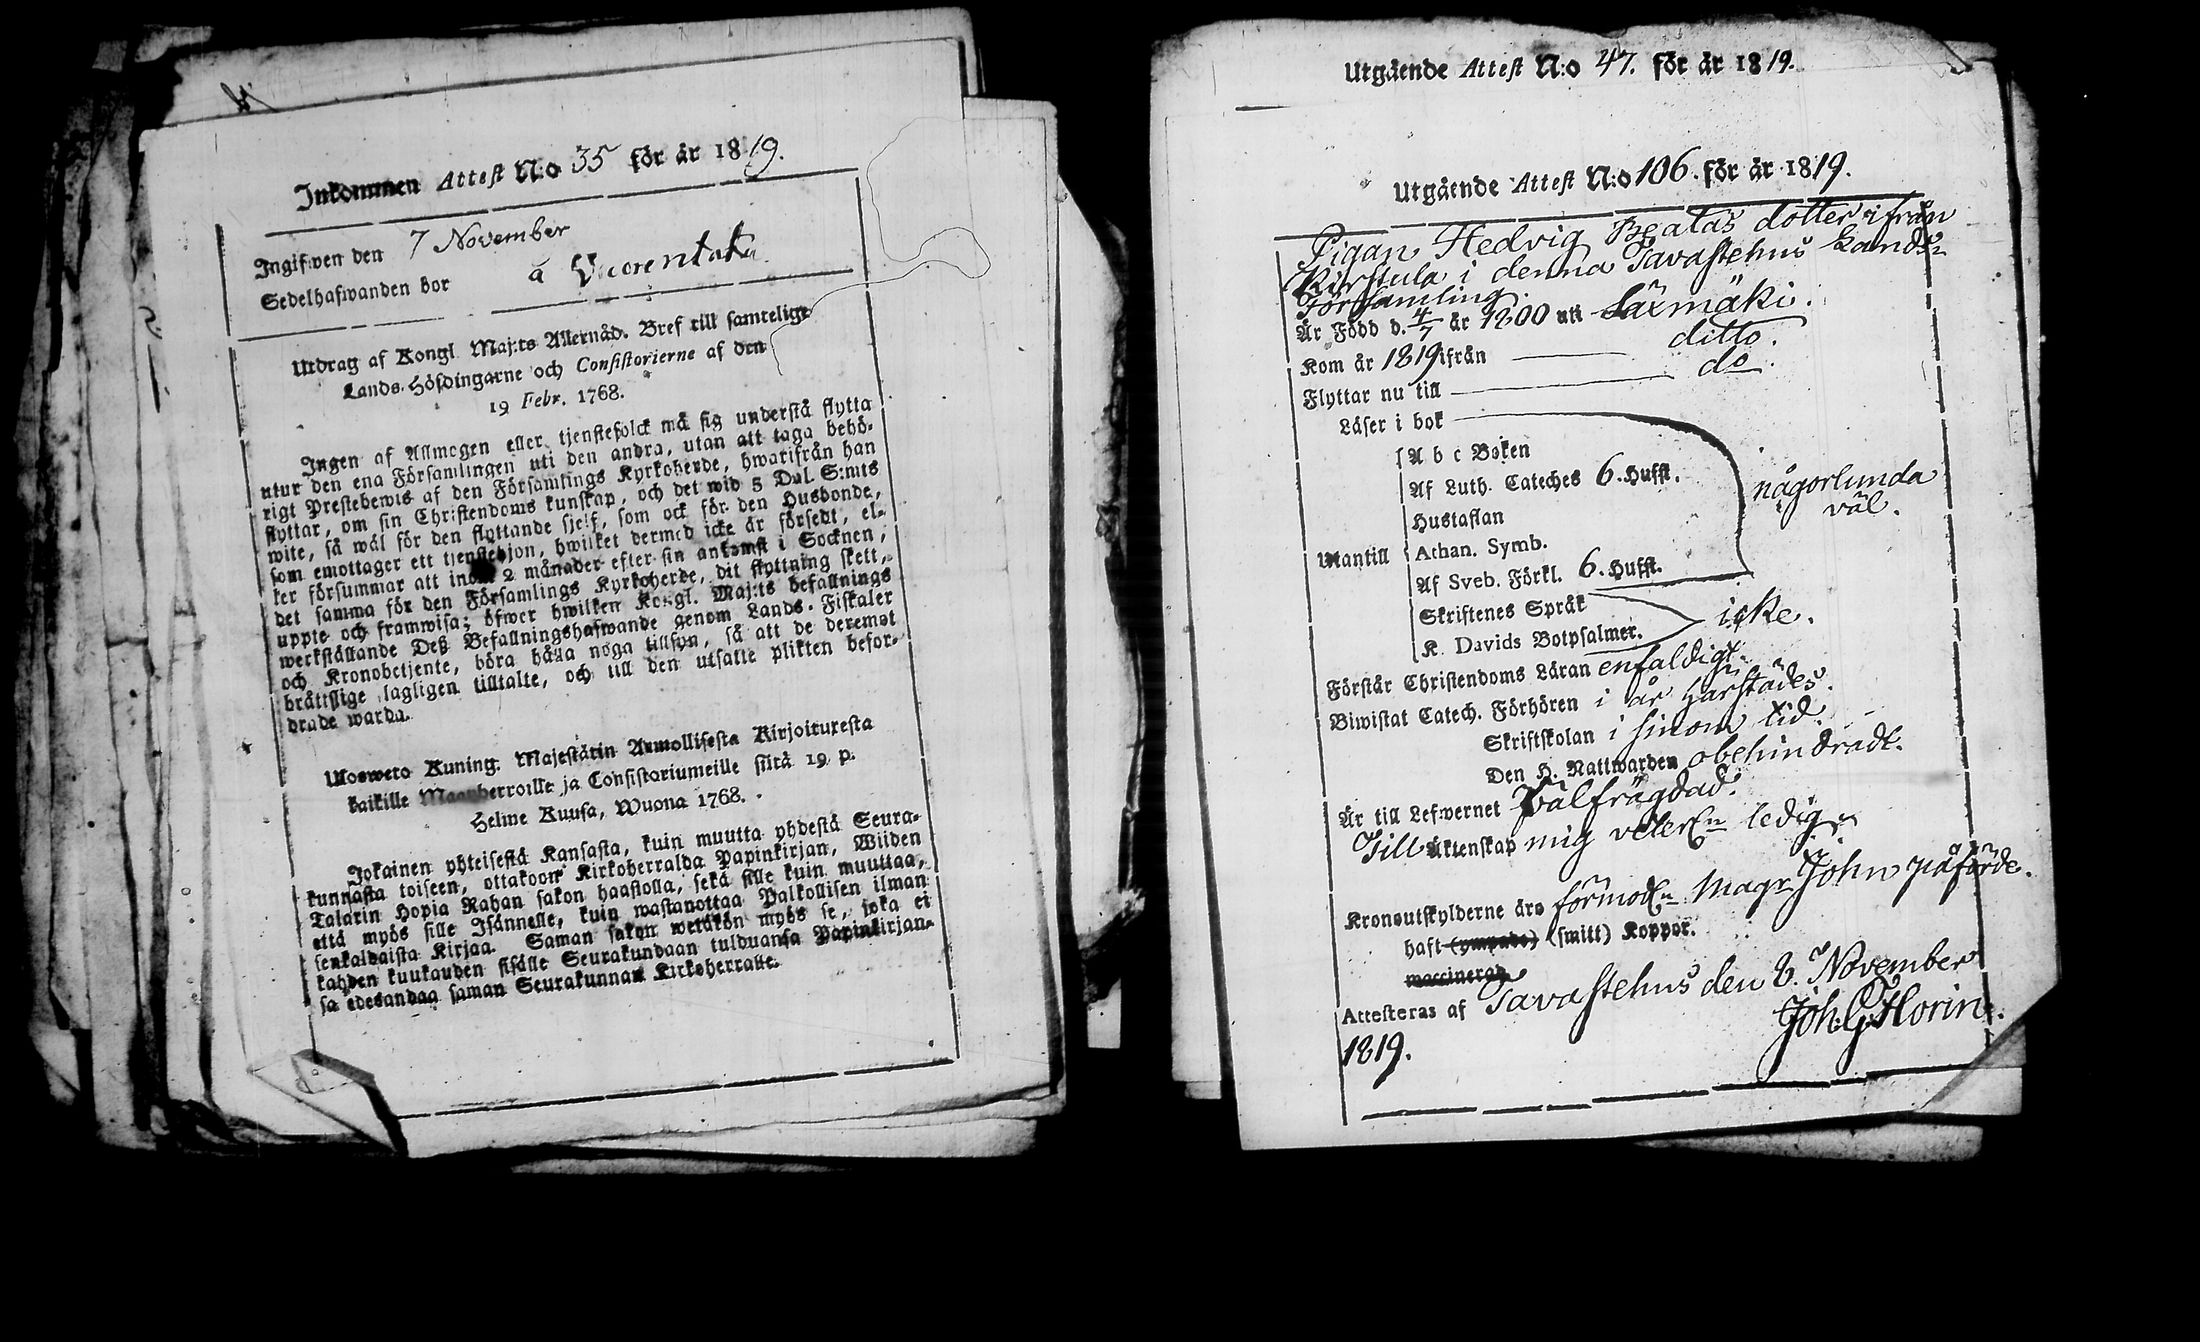 Inkommen Attest N:o 35 för år 1819.
Ingifwen den 7 November
Sedelhafwanden bor å Vuorentaka
Utdrag af Kongl. Maj:ts Allernåd. Bref till samtelige
Lands-Höfdingarne och Consistorierne af den
19 Febr. 1768.
Ingen af Allmogen eller tjenstefolck må sig understå flytta
utur den ena Församlingen uti den andra, utan att taga behö-
rigt Prestebewis af den Församlings Kyrkoherde, hwarifrån han
flyttar, om sin Christendoms kunskap, och det wid 5 Dal. S:mts
wite, så wäl för den flyttande sjelf, som ock för den Husbonde,
som emottager ett tjenstehjon, hwilket dermed icke är försedt, el-
ler försummar att inom 2 månader efter sin ankomst i Socknen,
det samma för den Församlings Kyrkoherde, dit flyttning skett,
uppte och framwisa; öfwer hwilken Kongl. Maj:ts befallnings
werkställande Deß Befallningshafwande genom Lands-Fiskaler
och Kronobetjente, böra hålla noga tillsyn, så att de deremot
bråttslige lagligen tilltalte, och till den utsatte plikten befor-
drade warda.
Ulosweto Kuning. Majestätin Armollisesta Kirjoituxesta
kaikille Maanherroille ja Consistoriumeille siitä 19 p.
Helme Kuusa, Wuona 1768.
Jokainen yhteisestä Kansasta, kuin muutta yhdestä Seura-
kunnasta toiseen, ottakoon Kirkoherralda Papinkirjan, Wiiden
Talarin Hopia Rahan sakon haastolla, sekä sille kuin muuttaa,
että myös sille Isännelle, kuin wastanottaa Palkollisen ilman
senkaldaista Kirjaa. Saman sakon wetäkön myös se, joka ei
kahden kuukauden sisälle Seurakundaan tulduansa Papinkirjan-
sa edesandaa saman Seurakunnan Kirkoherralle.
Utgående Attest N:o 47. för år 1819.
Utgående Attest N:o 106. för år 1819.
Pigan Hedvig Beatas dotter ifrån
Kirstula i denna Tavastehus Lands-
Församling.
Är Född d. 4/7 år 1800 uti Läxmäki.
Kom år 1819 ifrån ditto.
Flyttar nu till do.
Läser i bok
A b c Boken
Af Luth. Cateches 6. Hufst.
någorlunda
väl.
Hustaflan
Utantill
Athan. Symb.
Af Sveb. Förkl. 6. Hufst.
Skriftenes Språk
icke.
K. Davids Botpsalmer.
Förstår Christendoms Läran enfaldigt.
Biwistat Catech. Förhören i år härstädes.
Skriftskolan i sinom tid.
Den H. Nattwarden obehindradt.
Är till Lefwernet välfrägdad.
Till Äktenskap mig veterl:n ledig
Kronoutskylderne äro förmodl:n Magr. John påförde.
haft (ympade) (smitt) Koppor.
waccinerad
Attesteras af Tavastehus den 8. November
1819.
Joh. G. Florin.